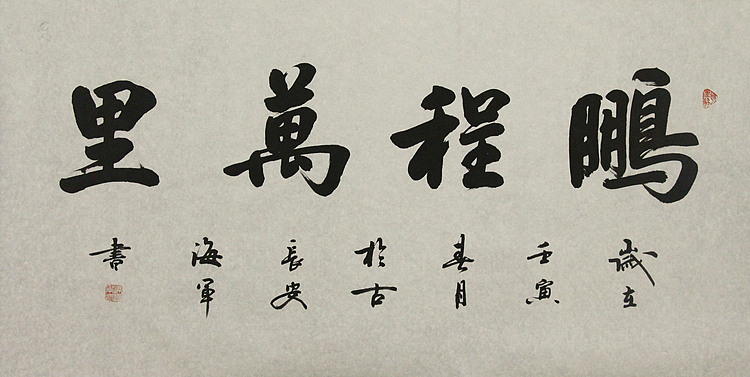 鵬程萬里
歲在
壬寅
春月
於古
長安
海軍
書